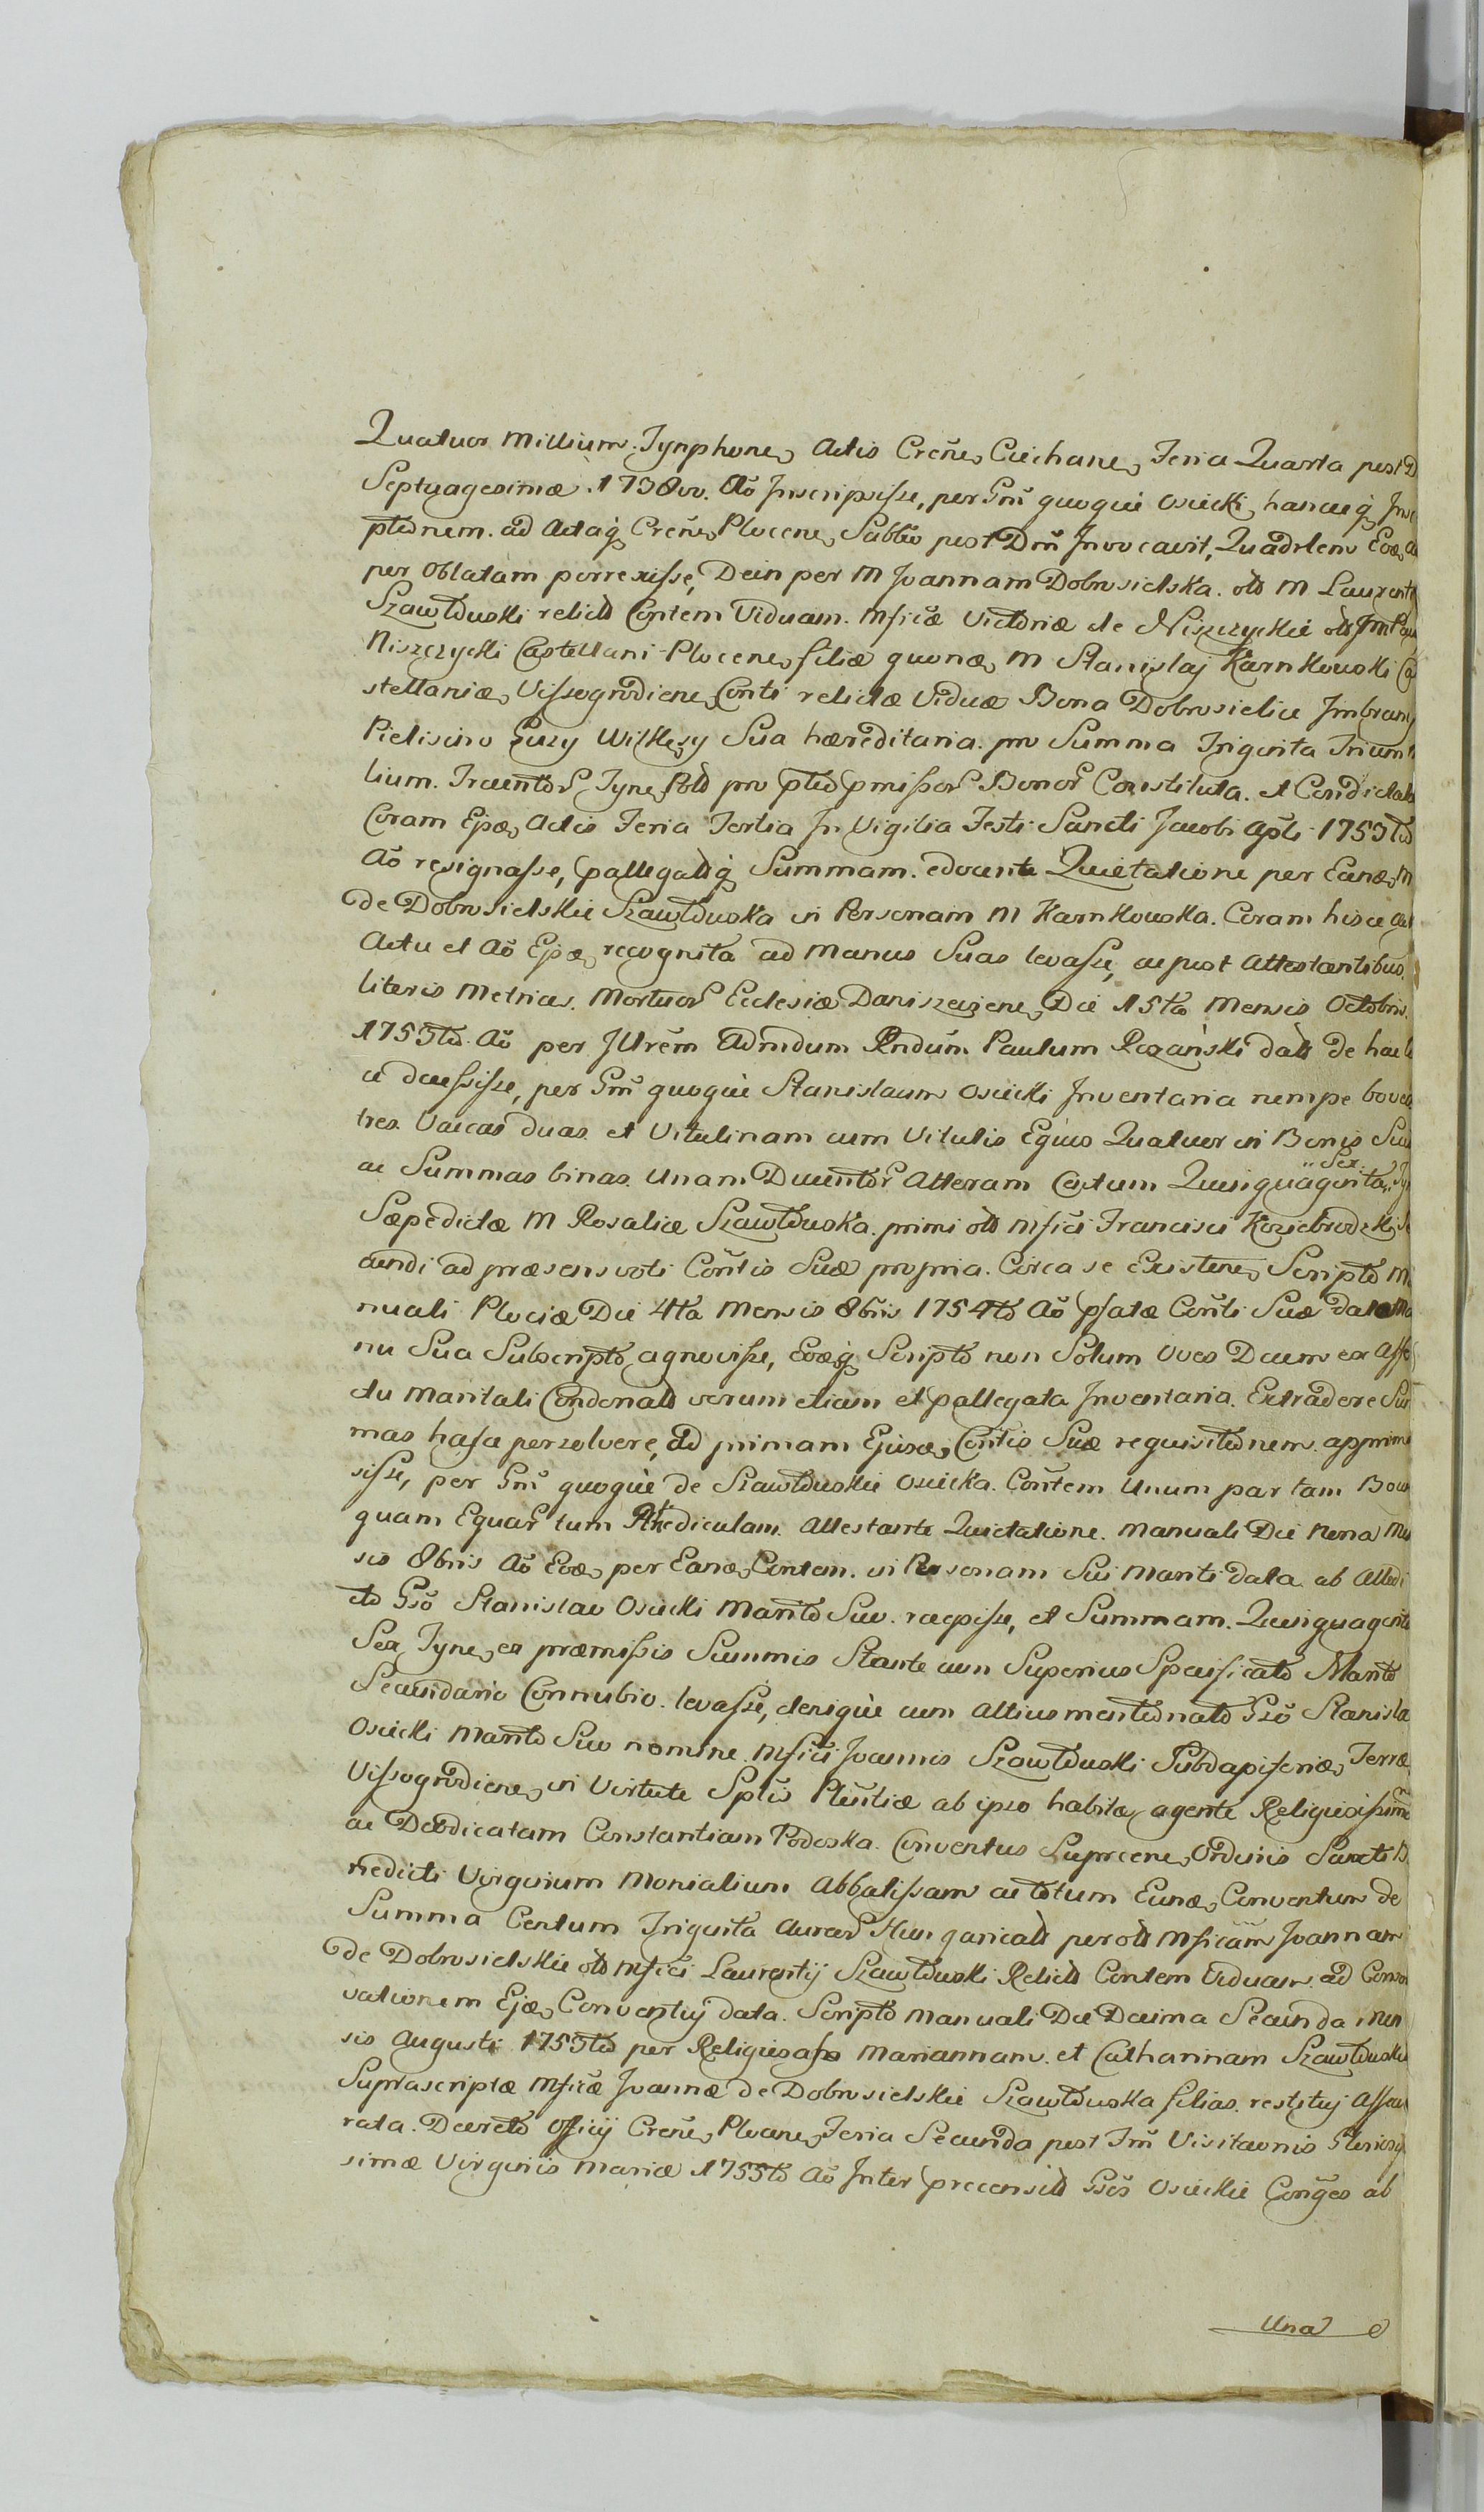 Quatuor Millium Tynphone, Actis Creñe, Ciechane, Feria Quarta post D
Septuagesimæ 1738vo. Aō Inscripsisse, per Gm̃ quoque Osiecki, hancq, Ins
ptõnem ad Actaq, Creñe, Plocene, Sabbõ post Dm̃ Invocavit, Quadrlem Eoe, A
per Oblatam porrexisse, Dein per M Joannam Dobrosielska. oĩb M Laurenty
Szawłowski relictã Contem Viduam. Mficæ Victoriæ de Niszczyckie
Niszczycki Castellani Plocene, filiæ quonæ, M Stanislaj Karnkowski Ca
stellaniæ, Vissogrodiene, Conti relictæ Viduæ Bona Dobrosielice Imbrany
Pieliscino Guzy Wilkesy Sua hæreditaria. pro Summa Triginta Trium
lium. Trecentor Tyne, pro ptẽo pmissor Bonor Constituta. et Condictata
Coram Ejsõe, Actis Feria Tertia In Vigilia Festi Sancti Jacobi Apti 1753tio
Aō resignasse, pallegatãq, Summam. edocente Quietatione per Eanõe, M
de Dobrosielskie Szawłowska in Personam M Karnkowska. Coram hisce Act
Actu et Aō Ejsõe, recognita ad Manus Suas levasse, ac post Attestantibus.
literis Metrices. Mortuor Ecclesiæ Daniszewiene, Die 15ta Mensis Octobris.
1753tio. Aō per Jllrẽm Admdum Rndum Paulum Rozański datis De hac l
ce decessisse, per Gm̃ quoque Stanislaum Osiecki Inventaria nempe boves
tres. Vaccas duas. et Vitulinam cum Vitulis Equos Quatuor in Bonis Suis
ac Summas binas. Unam Ducentor Alteram Centum Quinquaginta "Sex"
Sæpedictæ M Rosaliæ Szawłowska. primi olim Mfici Francisci Koziebrodzki, Se
cundi ad præsens voti Contis Suæ propria. Circa se Existene, Scripto M
nuali Plociæ Die 4ta Mensis 8bris 1754to Aō psatæ Conti Suæ dato Ma
nu Sua Subscripto, agnovisse, Eoeq, Scripto non Solum Oves Decem ex Affe
ctu Maritali Condonatas verum etiam et pallegata Inventaria. Extradere Sum
mas hasce persolvere, ad primam Ejusõe, Contis Suæ requisitõnem. appromi
sisse, per Gm̃ quoque de Szawłowskie Osiecka. Contem Unum par tam Boum
quam Equar tum Rhediculam. Attestante Quietatione. Manuali Die Nona Men
sis 8bris Aō Eoe, per Eanõe, Contem. in Personam Sui Mariti data ab Attedi
cto Gso Stanislao Osiecki Marito Suo. recepisse, et Summam. Quinquaginta
Sex Tyne, ex præmissis Summis Stante cum Superius Specificato Marito
Secundario Connubio. levasse, denique cum Altius mentionato Gso Stanisla
Osiecki Marito Suo nomine Mfici Joannis Szawłowski Subdapiferiæ, Terræ
Vissogrodiene, in Virtute Splis Plentiæ ab ipso habitæ, agente Religiosissimæ
ac Deodicatam Constantiam Podoska. Conventus Sieprcene, Ordinis Sancti B
nedicti Virginum Monialium Abbatissam ac totum Eunõe, Conventum de
Summa Centum Triginta Aureor Hungaricalium per olim Mficam Joannam
de Dobrosielskie olim Mfici Laurentij Szawłowski Relictã Contem Viduam. ad Conser
vationem Ejsõe, Conventuj data. Scripto Manuali Die Decima Secunda Men
sis Augusti 1753tio per Religiosas Mariannam. et Catharinam Szawłowskie
Suprascriptæ Mficæ Joannæ de Dobrosielskie Szawłowska filias. restituj Assecu
rata. Decreto Officij Creñe, Plocene, Feria Secunda post Fm̃ Visitaonis Gloriosis
simæ Virginis Mariæ 1755to Aō Inter precensitos Gsos Osieckie Conges ab
Una